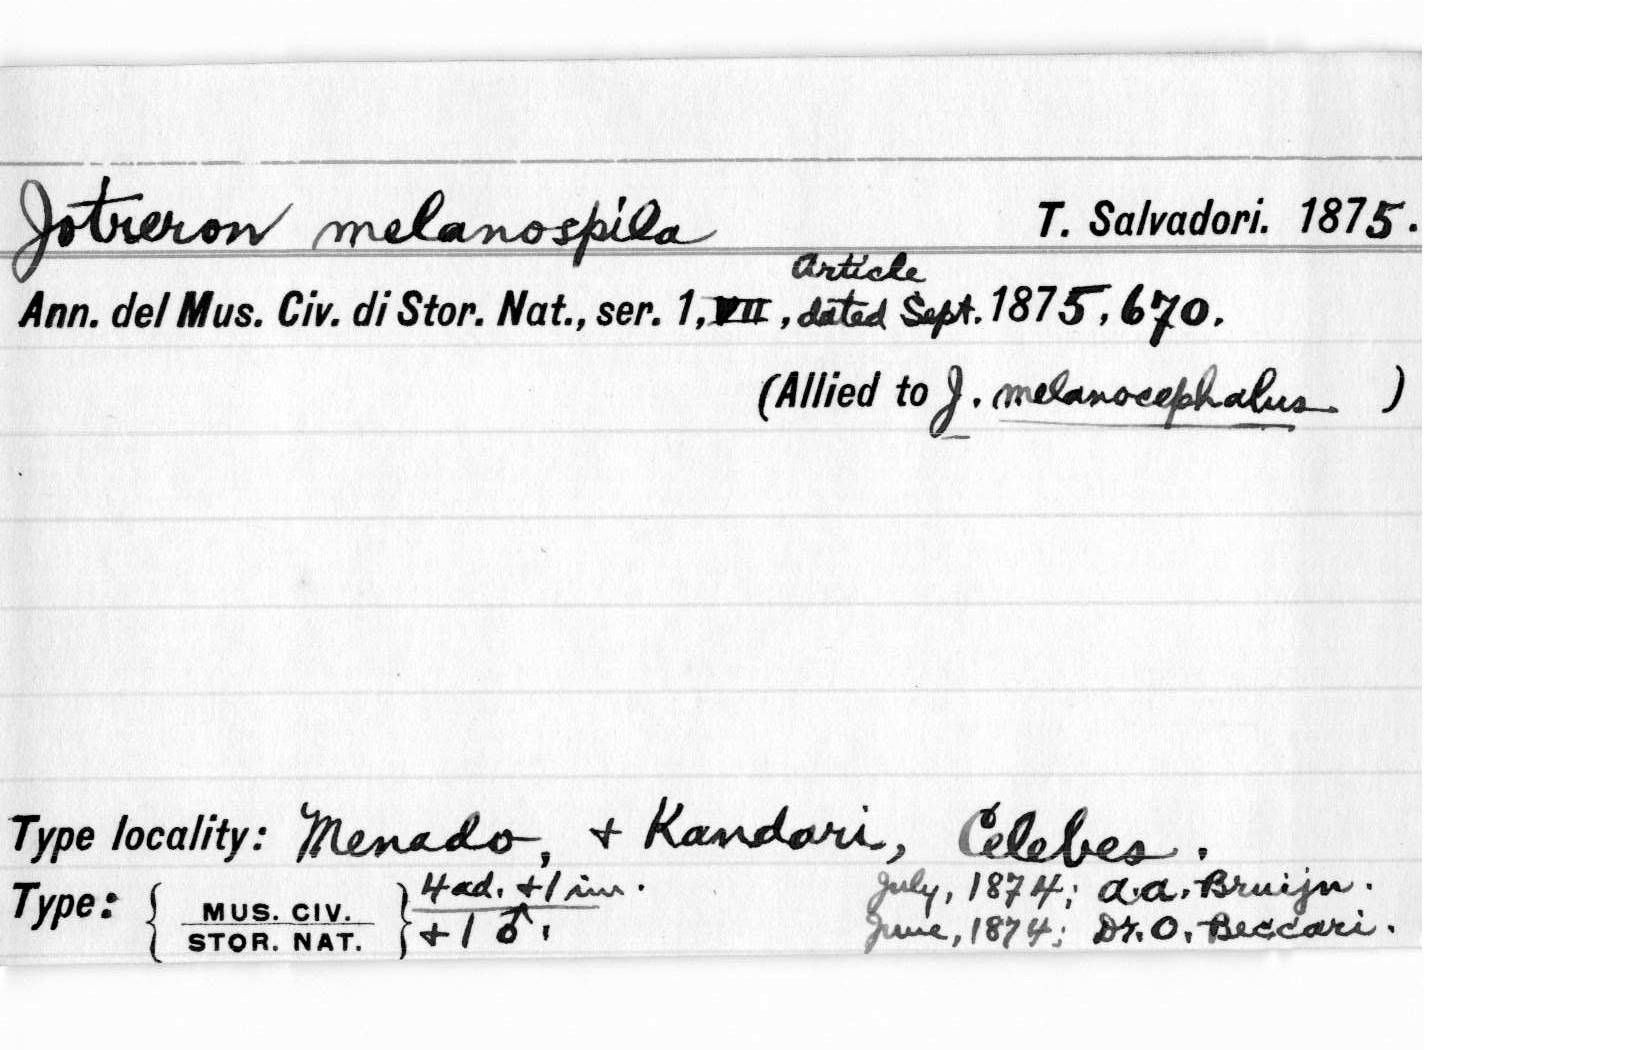 Jotreron melanospila T. Salvadori. 1875.
Article
Ann. del Mus. Civ. di Stor. Nat., ser. 1, VII, dated Sept. 1875, 670.
(Allied to J. melanocephalus )
Type locality: Menado, + Kandari, Celebes.
Type: { MUS. CIV. } 4 ad. + 1 im. July, 1874; A.A. Bruijn.
STOR. NAT. + 1 ♂. June, 1874; Dr. O. Beccari.